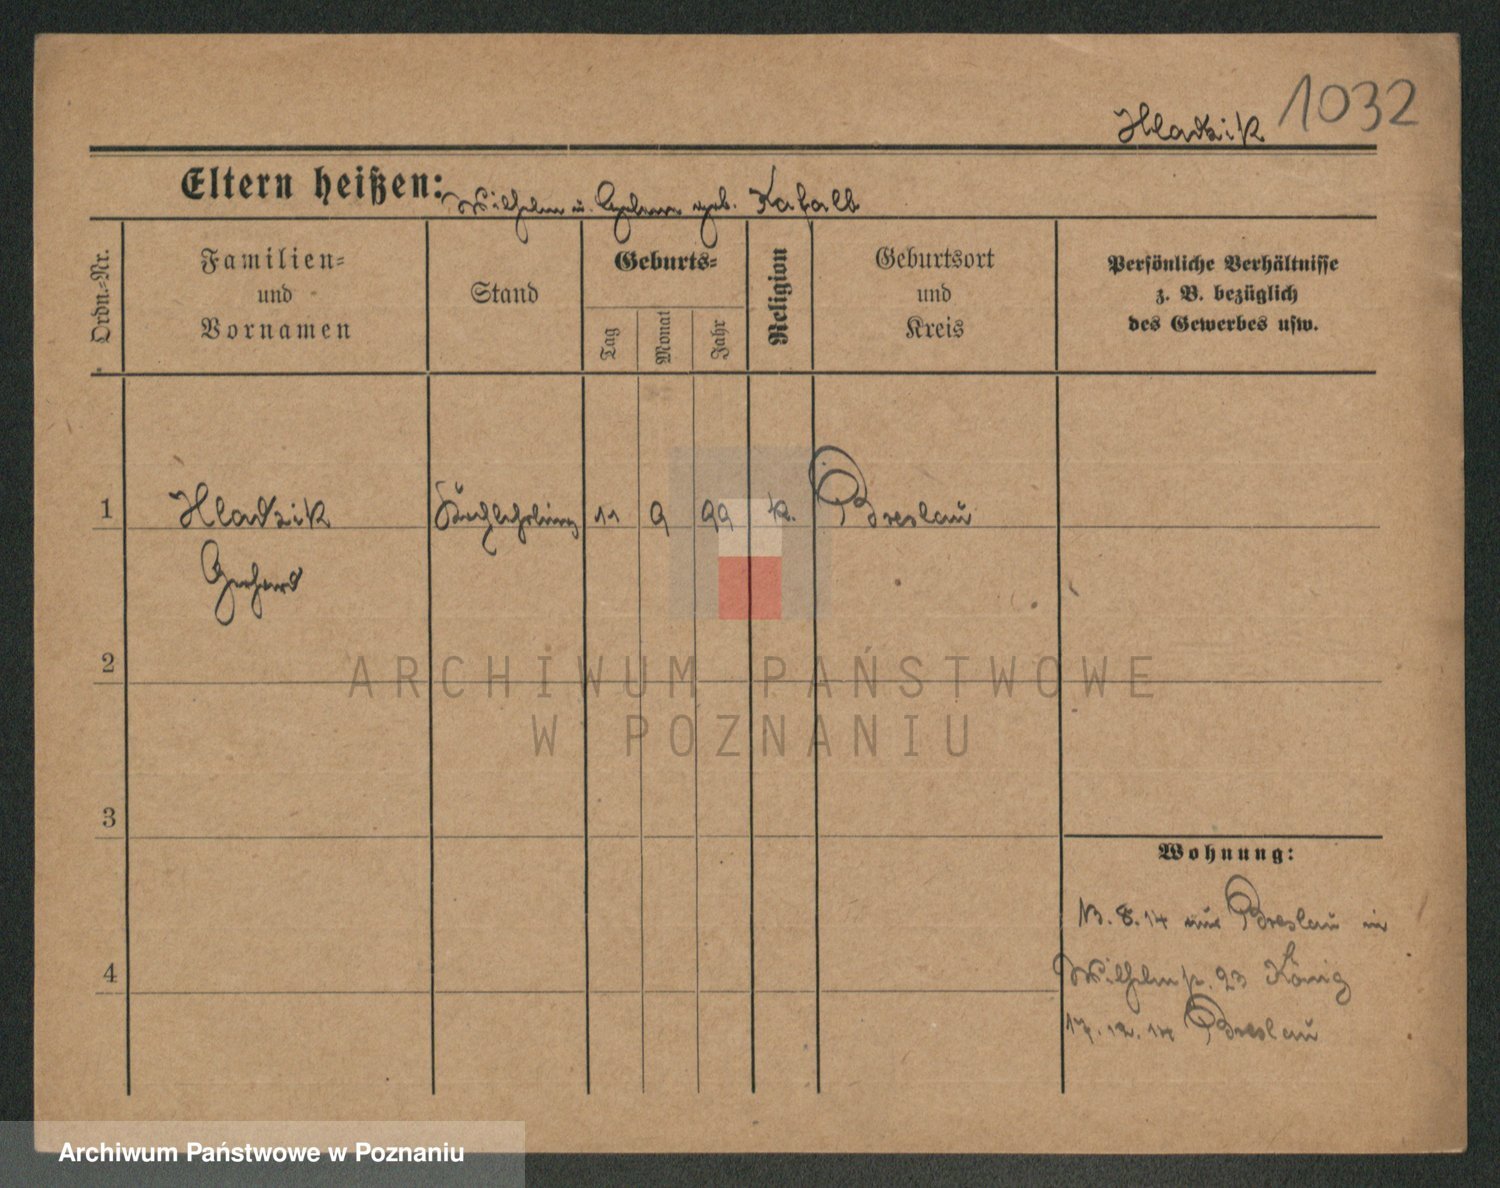 1032
Hladzik
Eltern heißen: Wilhelm u. geb.
Ordn.-Nr.
Familien-
und
Vornamen
Stand
Geburts-
Tag
Monat
Jahr
Religion
Geburtsort
und
Kreis
Persönliche Verhältnisse
z. B. bezüglich
des Gewerbes usw.
1 Hladzik 11 9 99 k. Breslau
Gerhard
2
ARCHIWUM PAŃSTWOWE
W POZNANIU
3
Wohnung:
13. 8. 14 aus Breslau in
4
Wilhelmstr. 23 König
17. 12. 14 Breslau
Archiwum Państwowe w Poznaniu